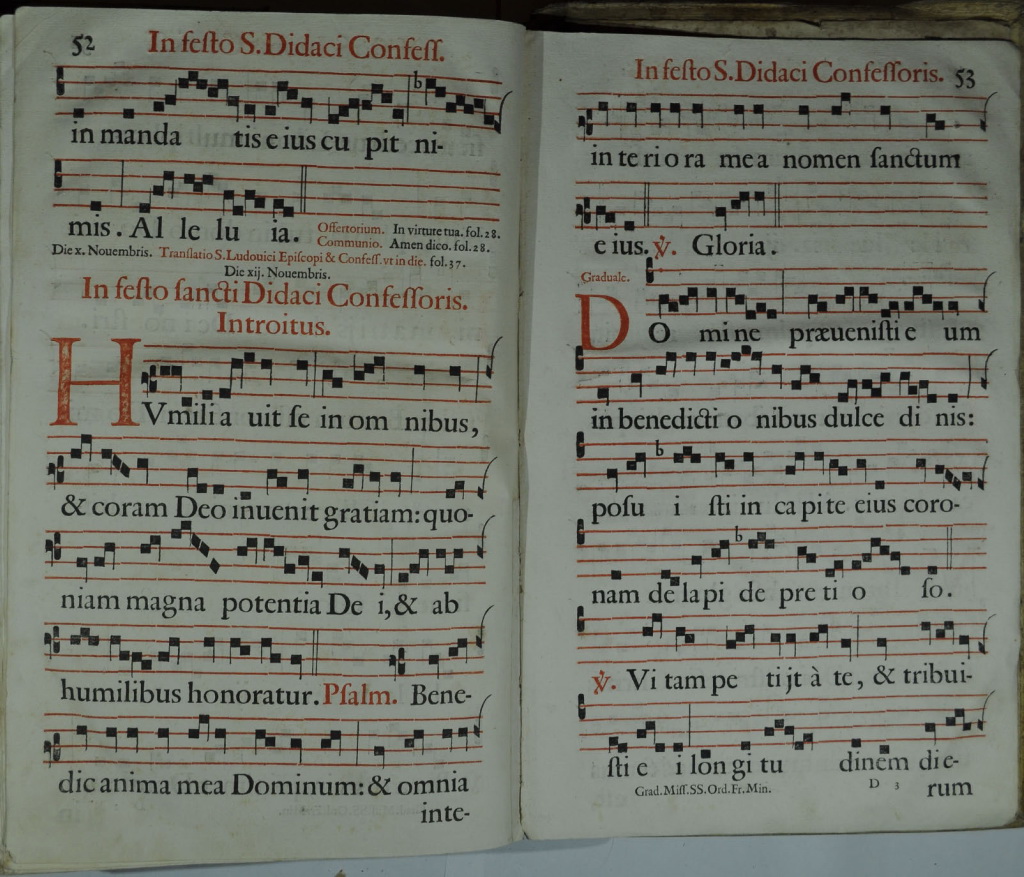 52 In feſto S. Didaci Confeſſ.
in manda tis e ius cu pit ni-
mis. Al le lu ia. Offertorium. In virture tua. fol. 28.
Communio. Amen dico. fol. 28.
Die x. Nouembris. Tranſlatio S. Ludouici Epiſcopi & Confeſſ. vt in die. fol. 37.
Die xij. Nouembris.
In feſto ſancti Didaci Confeſſoris.
Introitus.
HVmili a uit ſe in om nibus,
& coram Deo inuenit gratiam: quo-
niam magna potentia De i, & ab
humilibus honoratur. Pſalm. Bene-
dic anima mea Dominum: & omnia
inte-
In feſto S. Didaci Confeſſoris. 53
in te ri o ra me a nomen ſanctum
e ius. ℣. Gloria.
Graduale.
DO mi ne præueniſti e um
in benedicti o nibus dulce di nis:
poſu i ſti in ca pi te eius coro-
nam de la pi de pre ti o ſo.
℣. Vi tam pe ti jt à te, & tribui-
ſti e i lon gi tu dinem die-
Grad. Miſſ. SS. Ord. Fr. Min. D 3 rum